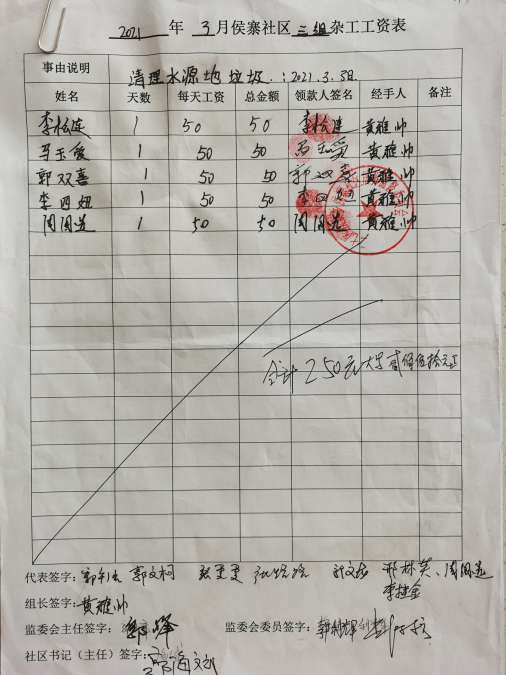 2021 年 3 月侯寨社区 三组 杂工工资表
事由说明 清理水源地垃圾.:2021.3.3日
姓名 天数 每天工资 总金额 领款人签名 经手人 备注
李松连 1 50 50 李松连 黄雅帅
马玉爱 1 50 50 马玉爱 黄雅帅
郭双喜 1 50 50 郭双喜 黄雅帅
李四妞 1 50 50 李四妞 黄雅帅
周国选 1 50 50 周国选 黄雅帅
合计 250元 大写 贰佰伍拾元正
代表签字: 郭文柯 邢林英、周国选
组长签字: 黄雅帅
监委会主任签字: 监委会委员签字:
社区书记（主任）签字: